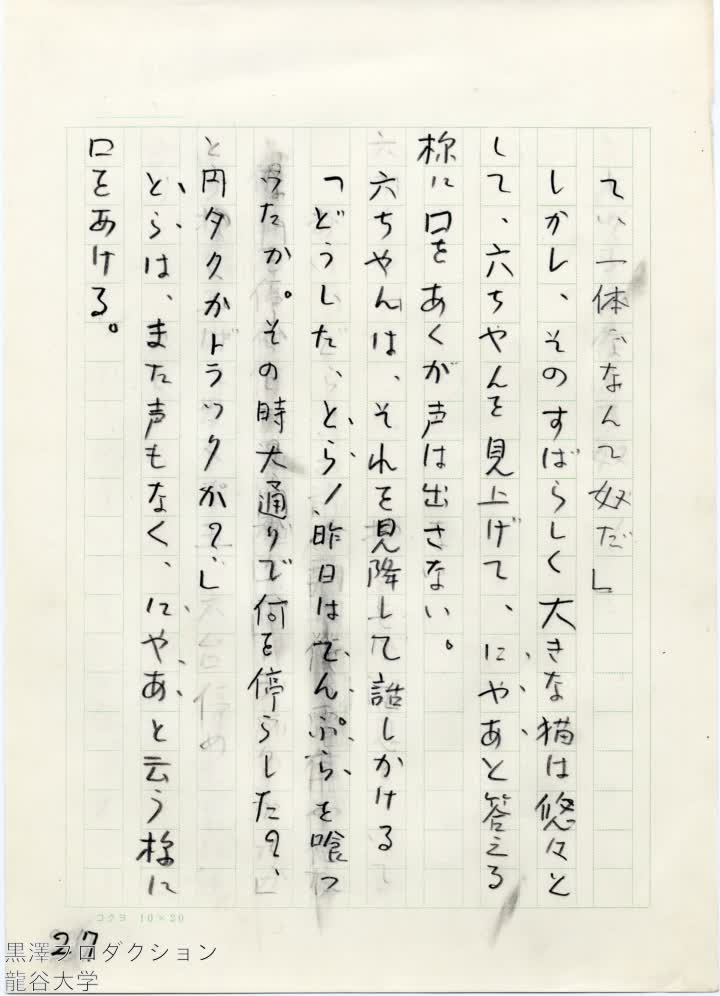 て、一体なんて奴だ」
しかし、そのすばらしく大きな猫は悠々と
して、六ちゃんを見上げて、にやあと答える
様に口をあくが声は出さない。
六ちゃんは、それを見降して話しかける
「どうした、とら！昨日はてんぷらを喰っ
うたか。その時大通りで何を停らした？、
円タクかトラックか？」
とらは、また声もなく、にやあと云う様に
口をあける。
コクヨ 10×20
27
黒澤プロダクション
龍谷大学